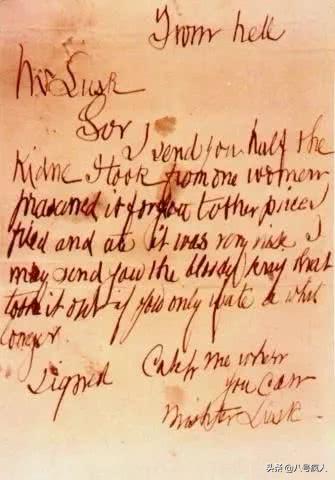 From hell
Mr Lusk
Sor
I send you half the
Kidne I took from one women
prasarved it for you tother piece I
fried and ate it was very nise I
may send you the bloody knif that
took it out if you only wate a whil
longer.
signed
Catch me when
you can
Mishter Lusk.
头条 @八号疯人